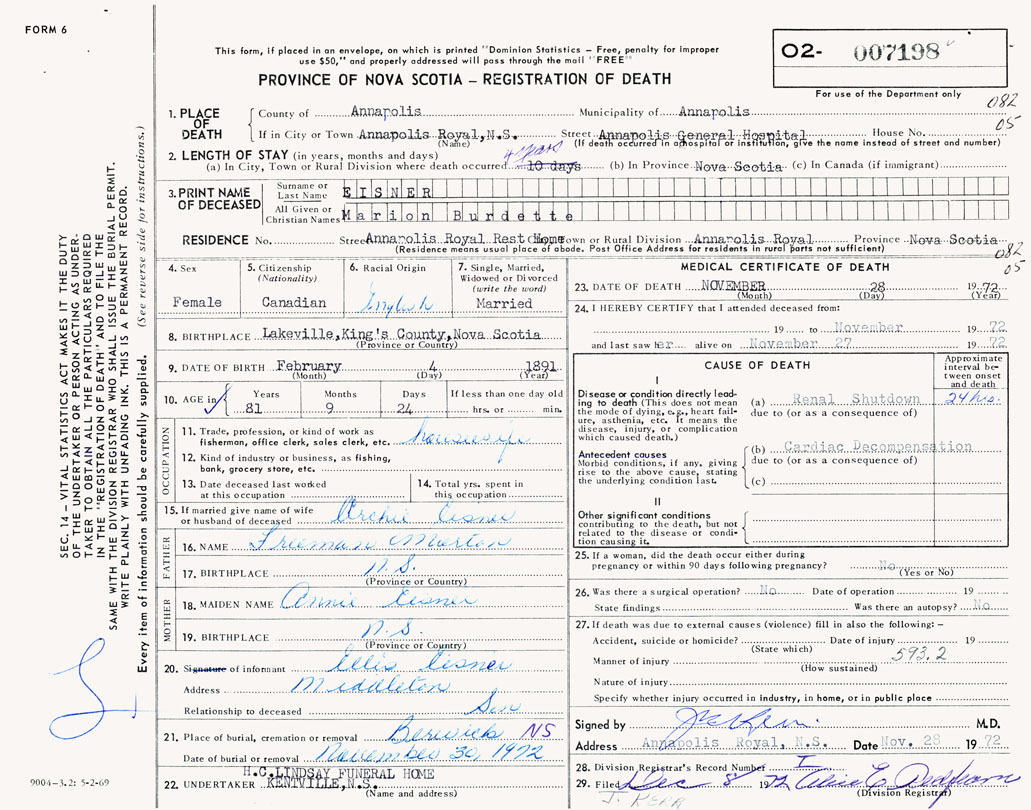 FORM 6
This form, if placed in an envelope, on which is printed "Dominion Statistics – Free, penalty for improper
use $50," and properly addressed will pass through the mail "FREE"
PROVINCE OF NOVA SCOTIA – REGISTRATION OF DEATH
02- 007198
For use of the Department only
082
05
1. PLACE OF DEATH
County of Annapolis Municipality of Annapolis
If in City or Town Annapolis Royal, N.S. Street Annapolis General Hospital House No.
(Name) (If death occurred in a hospital or institution, give the name instead of street and number)
2. LENGTH OF STAY (in years, months and days)
(a) In City, Town or Rural Division where death occurred 10 days years (b) In Province Nova Scotia (c) In Canada (if immigrant)
3. PRINT NAME OF DECEASED
Surname or Last Name EISNER
All Given or Christian Names Marion Burdette
RESIDENCE No. Street Annapolis Royal Rest Home Town or Rural Division Annapolis Royal Province Nova Scotia
(Residence means usual place of abode. Post Office Address for residents in rural parts not sufficient)
082
05
4. Sex
Female
5. Citizenship
(Nationality)
Canadian
6. Racial Origin
English
7. Single, Married,
Widowed or Divorced
(write the word)
Married
8. BIRTHPLACE Lakeville, King's County, Nova Scotia
(Province or Country)
9. DATE OF BIRTH February 4 1891
(Month) (Day) (Year)
10. AGE in
Years Months Days If less than one day old
81 9 24 hrs. or min.
OCCUPATION
11. Trade, profession, or kind of work as
fisherman, office clerk, sales clerk, etc. housewife
12. Kind of industry or business, as fishing,
bank, grocery store, etc.
13. Date deceased last worked
at this occupation
14. Total yrs. spent in
this occupation
15. If married give name of wife
or husband of deceased Archie Eisner
FATHER
16. NAME Freeman Morton
17. BIRTHPLACE N.S.
(Province or Country)
MOTHER
18. MAIDEN NAME Annie Eisner
19. BIRTHPLACE N.S.
(Province or Country)
20. Signature of informant Ellis Eisner
Address Middleton
Relationship to deceased Son
21. Place of burial, cremation or removal Berwick NS
Date of burial or removal November 30, 1972
22. UNDERTAKER H.C. LINDSAY FUNERAL HOME
KENTVILLE, N.S.
(Name and address)
MEDICAL CERTIFICATE OF DEATH
23. DATE OF DEATH NOVEMBER 28 1972
(Month) (Day) (Year)
24. I HEREBY CERTIFY that I attended deceased from:
19 to November 1972
and last saw her alive on November 27 1972
CAUSE OF DEATH
Approximate
interval be-
tween onset
and death
I
Disease or condition directly lead-
ing to death (This does not mean
the mode of dying, e.g., heart fail-
ure, asthenia, etc. It means the
disease, injury, or complication
which caused death.)
(a) Renal Shutdown 24 hrs.
due to (or as a consequence of)
Antecedent causes
Morbid conditions, if any, giving
rise to the above cause, stating
the underlying condition last.
(b) Cardiac Decompensation
due to (or as a consequence of)
(c)
II
Other significant conditions
contributing to the death, but not
related to the disease or condi-
tion causing it.
25. If a woman, did the death occur either during
pregnancy or within 90 days following pregnancy? No
(Yes or No)
26. Was there a surgical operation? No Date of operation 19
State findings Was there an autopsy? No
27. If death was due to external causes (violence) fill in also the following: –
Accident, suicide or homicide? Date of injury 19
(State which)
593.2
Manner of injury
(How sustained)
Nature of injury
Specify whether injury occurred in industry, in home, or in public place
Signed by M.D.
Address Annapolis Royal, N.S. Date Nov. 28 1972
28. Division Registrar's Record Number I
29. Filed Dec 8 1972 Alice E
(Division Registrar)
J. KERR
SEC. 14 – VITAL STATISTICS ACT MAKES IT THE DUTY
OF THE UNDERTAKER OR PERSON ACTING AS UNDER-
TAKER TO OBTAIN ALL THE PARTICULARS REQUIRED
IN THE "REGISTRATION OF DEATH" AND TO FILE THE
SAME WITH THE DIVISION REGISTRAR WHO SHALL ISSUE THE BURIAL PERMIT.
WRITE PLAINLY WITH UNFADING INK. THIS IS A PERMANENT RECORD.
Every item of information should be carefully supplied. (See reverse side for instructions.)
9004–3.2: 5-2-69